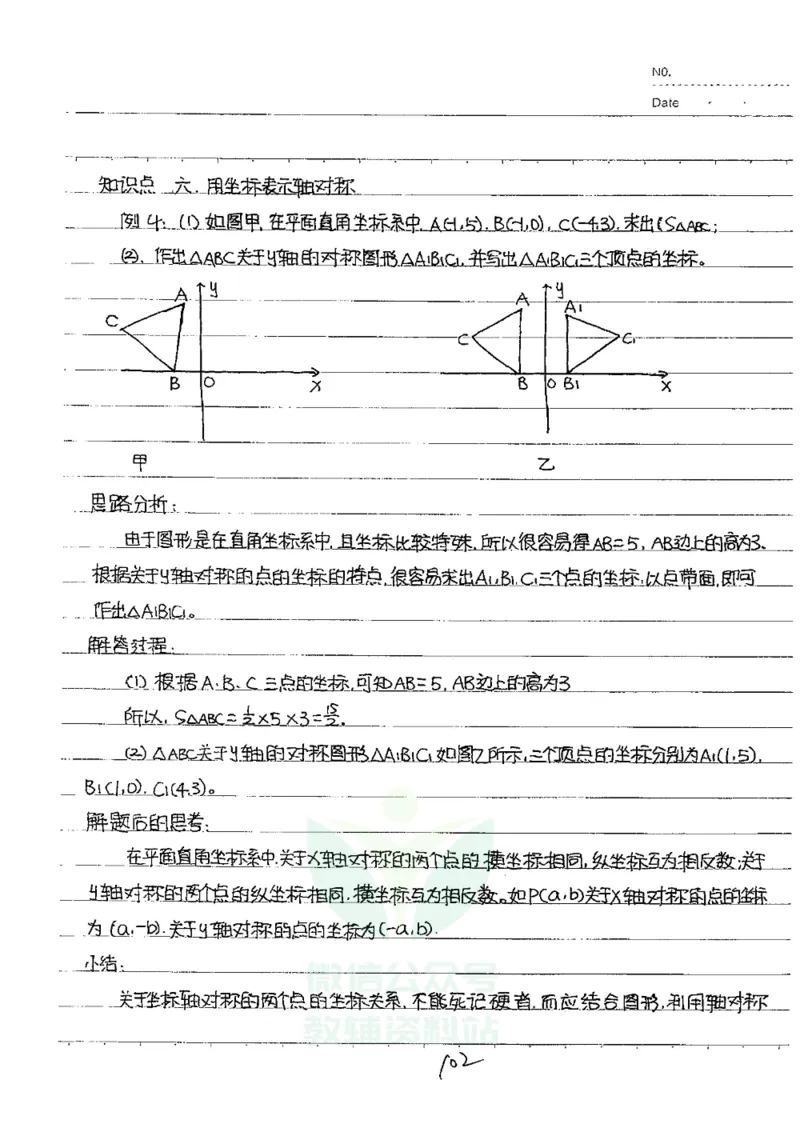 NO.
Date
知识点 六、用坐标表示轴对称
例4:(1)如图甲,在平面直角坐标系中,A(-1,5),B(-1,0),C(-4,3).求出S△ABC;
(2)、作出△ABC关于y轴的对称图形△A1B1C1,并写出△A1B1C1三个顶点的坐标。
A y
C
B O x
甲
A y A1
C C1
B O B1 x
乙
思路分析:
由于图形是在直角坐标系中,且坐标比较特殊,所以很容易得AB=5,AB边上的高为3、
根据关于y轴对称的点的坐标的特点,很容易求出A1,B1,C1三个点的坐标,以点带面,即可
作出△A1B1C1。
解答过程:
(1)根据A、B、C三点的坐标,可知AB=5,AB边上的高为3
所以,S△ABC=1/2×5×3=15/2.
(2)△ABC关于y轴的对称图形△A1B1C1如图乙所示,三个顶点的坐标分别为A1(1,5),
B1(1,0),C1(4,3)。
解题后的思考:
在平面直角坐标系中,关于X轴对称的两个点的横坐标相同,纵坐标互为相反数;关于
y轴对称的两个点的纵坐标相同,横坐标互为相反数。如P(a,b)关于X轴对称的点的坐标
为(a,-b),关于y轴对称的点的坐标为(-a,b).
小结:
关于坐标轴对称的两个点的坐标关系,不能死记硬背,而应结合图形,利用轴对称
微信公众号
教辅资料站
102